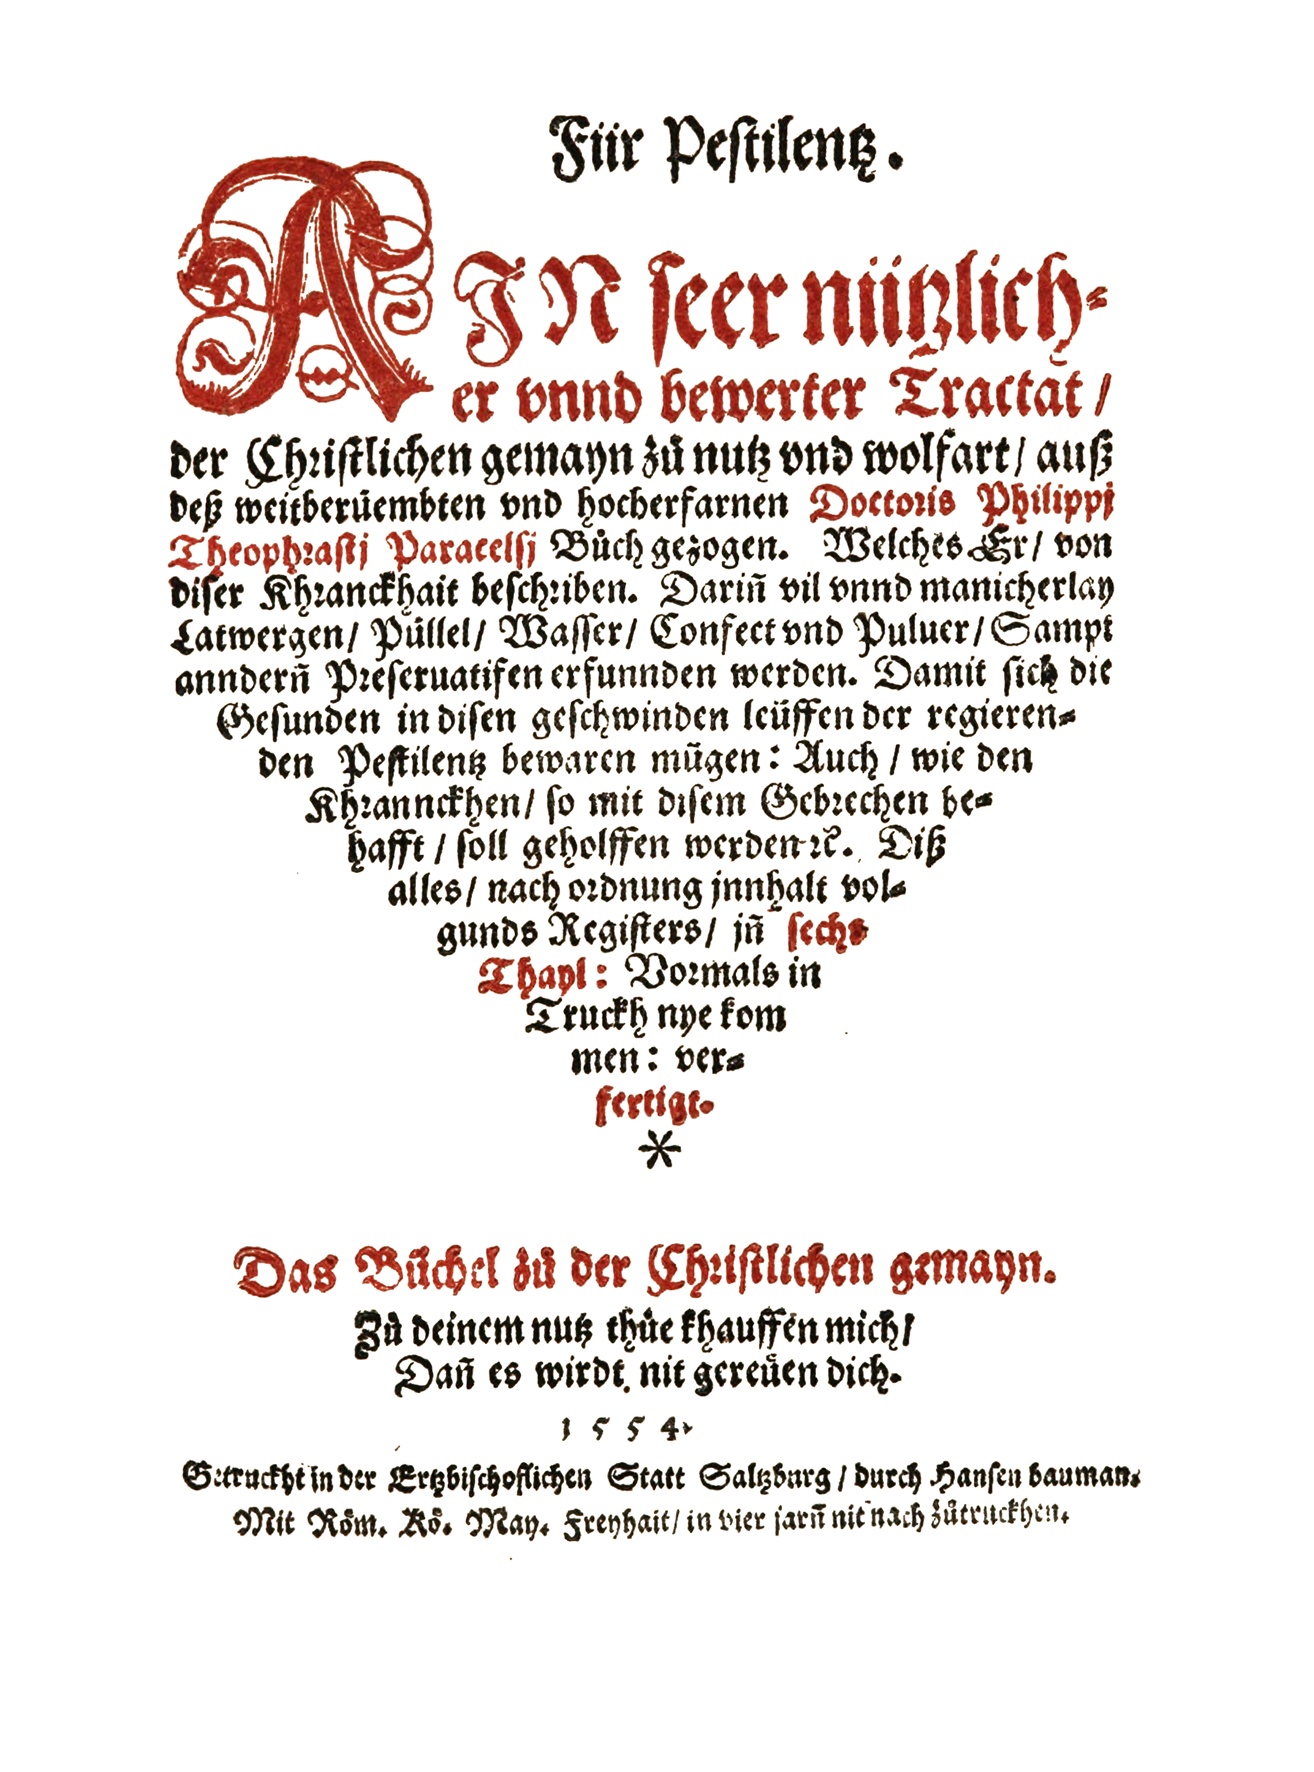 Für Pestilentz.
AIN seer nützlich⸗
er vnnd bewerter Tractat /
der Christlichen gemayn zů nutz vnd wolfart / auß
deß weitberüembten vnd hocherfarnen Doctoris Philippj
Theophrastj Paracelsj Bůch gezogen. Welches Er / von
diser Khranckhait beschriben. Dariñ vil vnnd manicherlay
Latwergen / Püllel / Wasser / Confect vnd Puluer / Sampt
annderñ Preseruatifen erfunnden werden. Damit sich die
Gesunden in disen geschwinden leüffen der regieren⸗
den Pestilentz bewaren mügen: Auch / wie den
Khrannckhen / so mit disem Gebrechen be⸗
hafft / soll geholffen werden ꝛc. Diß
alles / nach ordnung jnnhalt vol⸗
gunds Registers / jñ sechs
Thayl: Vormals in
Truckh nye kom
men: ver⸗
fertigt.
*
Das Büchel zů der Christlichen gemayn.
Zů deinem nutz thůe khauffen mich /
Dañ es wirdt nit gereüen dich.
1554.
Getruckht in der Ertzbischoflichen Statt Saltzburg / durch Hansen bauman.
Mit Röm. Kö. May. Freyhait / in vier jarñ nit nach zůtruckhen.